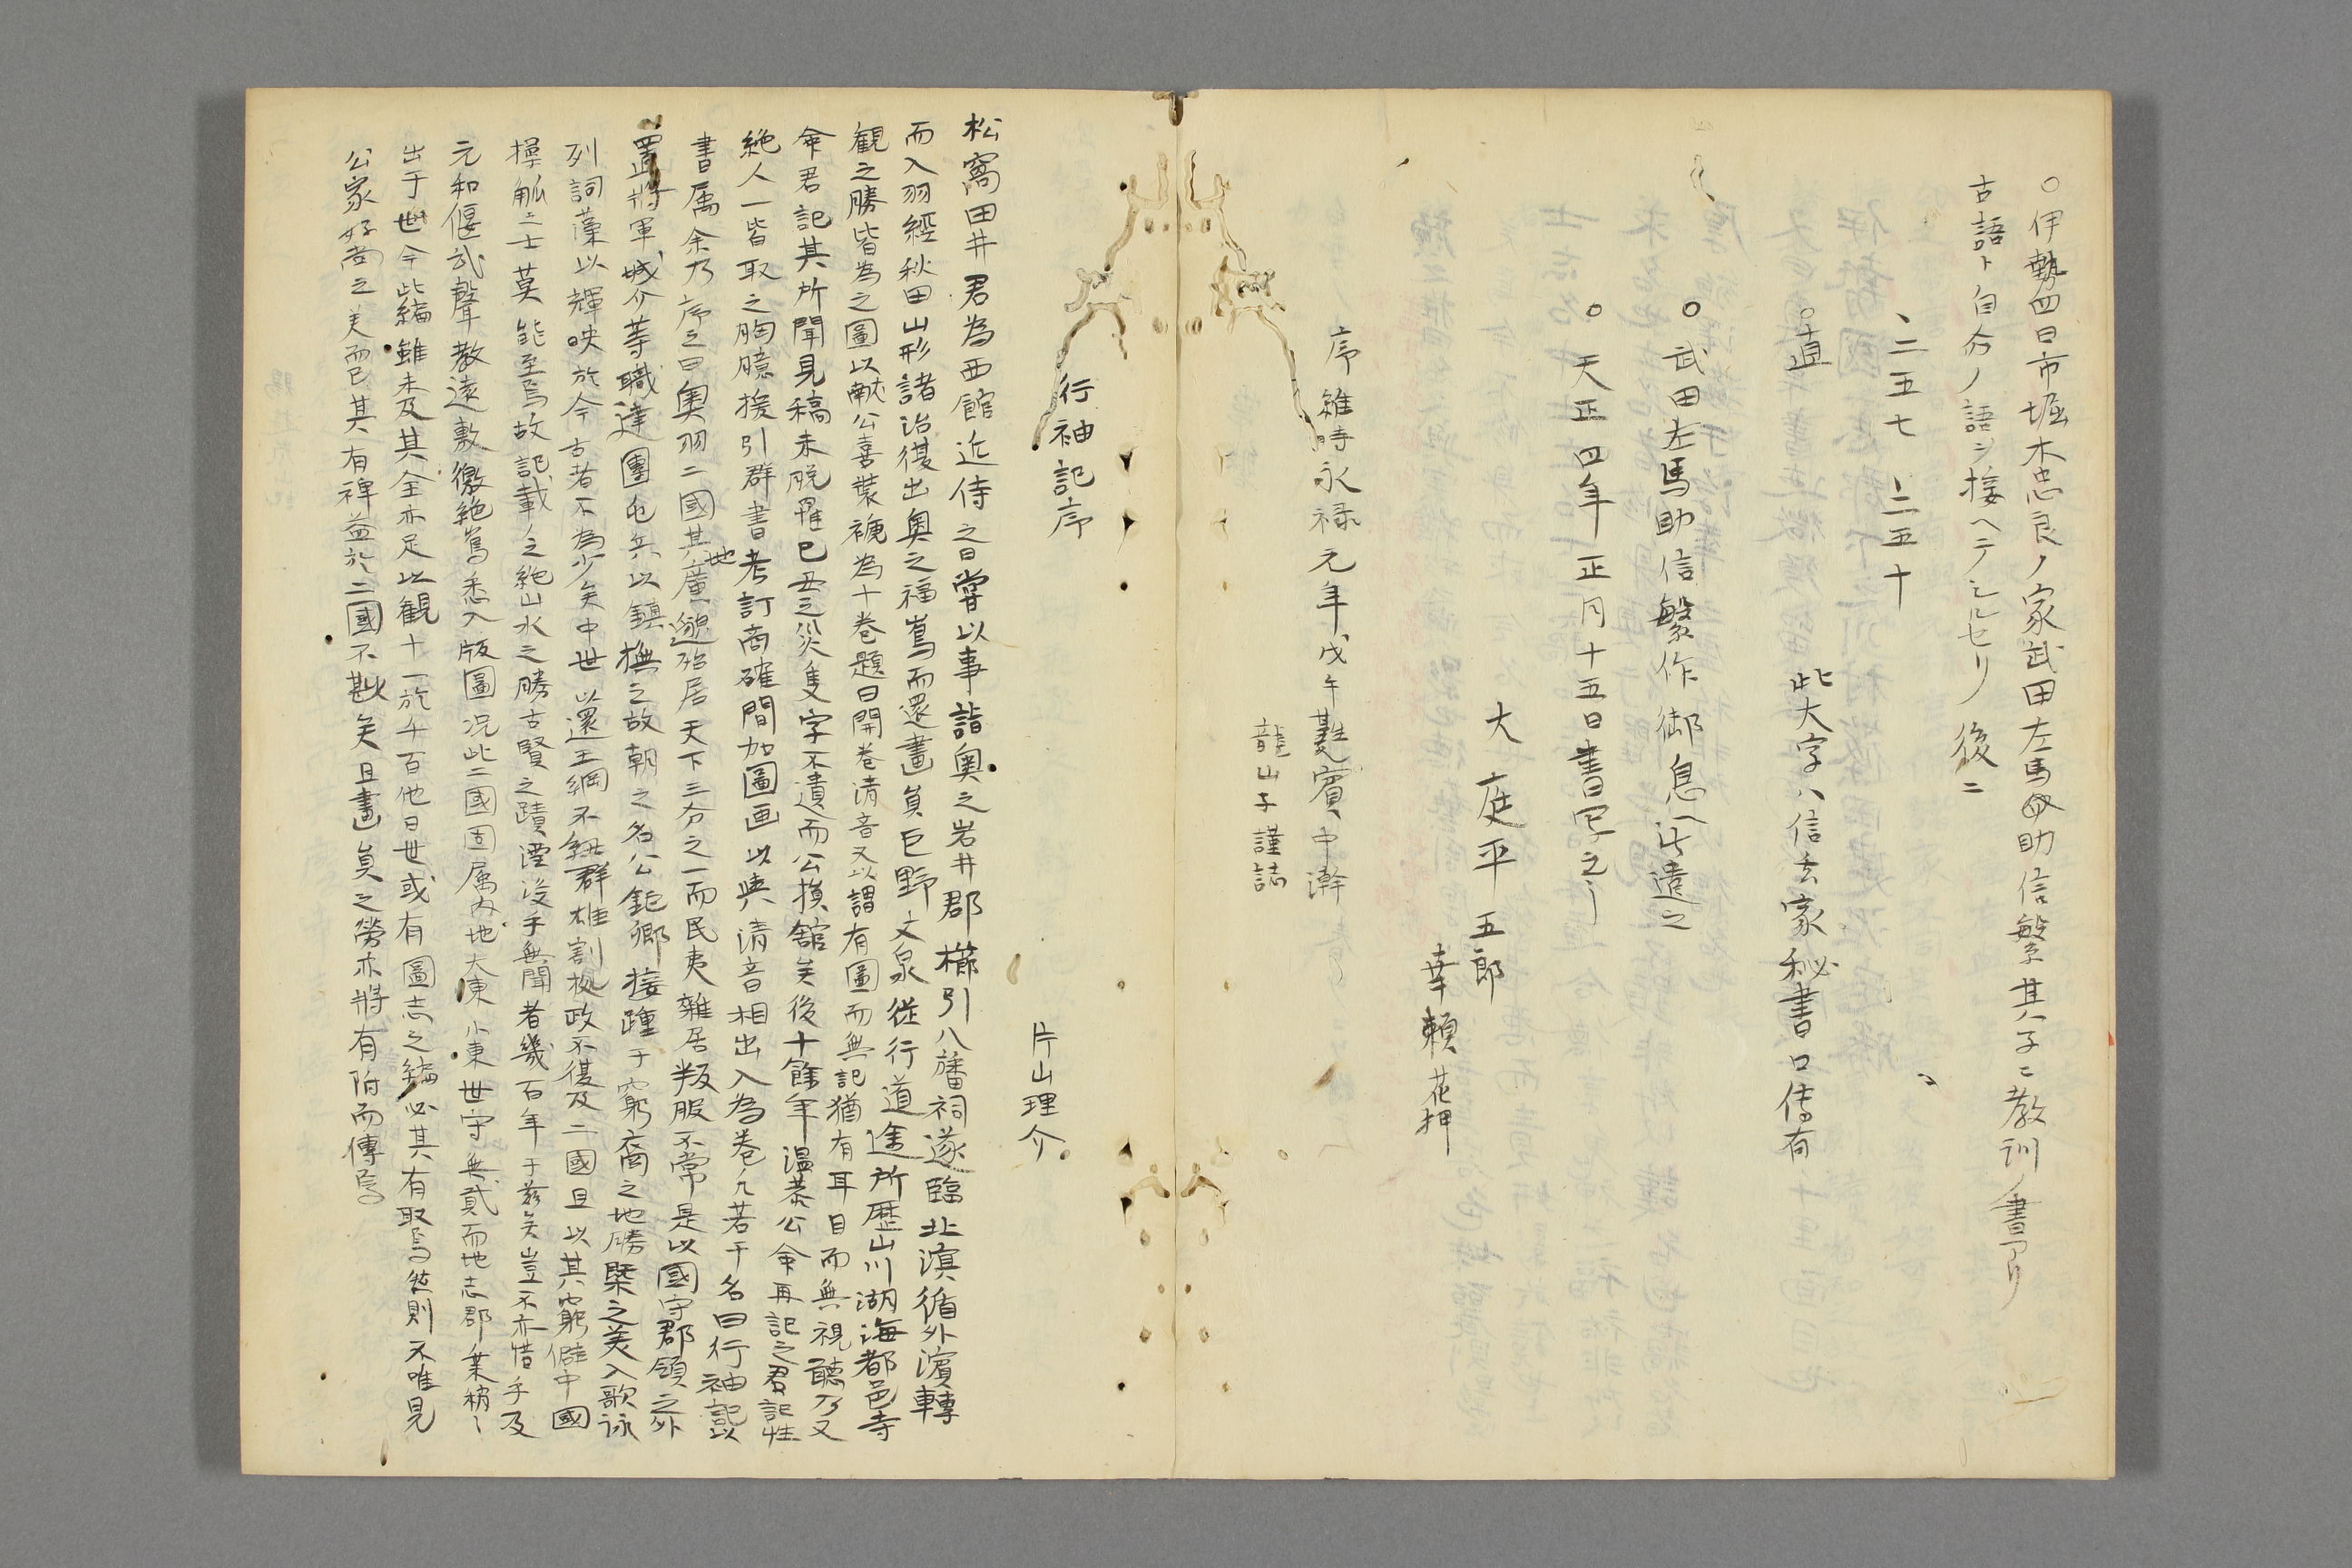 ○伊勢四日市堀木忠良ノ家武田左馬助信繁其子ニ教訓ノ書アリ
古語ト自分ノ語ヲ接ヘテシルセリ後ニ
、二五七 二五十
○直 此大字ハ信玄家秘書口傳有
○武田左馬助信繁作御息へ遣之
○天正四年正月十五日書写之
大庭平五郎
幸頼花押
序 維時永禄元年戊午蕤賓中澣
龍山子謹誌
行袖記序
片山理介
松窩田井君為西館近侍之日嘗以事詣奥之岩井郡櫛引八旛祠遂臨北溟循外濱轉
而入羽經秋田山形諸治復出奥之福嶌而還畫員巨野文泉從行道途所歴山川湖海都邑寺
観之勝皆為之圖以献公喜装褫為十巻題曰開巻清音又以謂有圖而無記猶有耳目而無視聽乃又
命君記其所聞見稿未脱罹巳丑之災隻字不遺而公損舘矣後十餘年温恭公命再記之君記性
絶人一皆取之胸臆援引群書考訂商確間加圖画以與清音相出入為巻凡若干名曰行袖記以
書属余乃序之曰奥羽二國其地廣邈殆居天下三分之一而民夷雜居叛服不常是以國守郡領之外
置将軍城介等職達團屯兵以鎮撫之故朝之名公鉅卿接踵于窮裔之地勝槩之美入歌詠
列詞藻以輝映於今古者不為少矣中世以還王綱不紐群雄割拠政不復及二國且以其窮僻中國
操觚之士莫能至焉故記載之絶山水之勝古賢之蹟湮没乎無聞者幾百年于茲矣豈不亦惜乎及
元和偃武聲教遠敷徼絶嶌悉入版圖况此二國固属内地大東小東世守無貳而地志郡乗稍々
出于世今此編雖未及其全亦足以観十一於千百他日世或有圖志之編必其有取焉然則不唯見
公家好尚之美而已其有裨益於二國不尠矣且畫員之勞亦将有附而傳焉